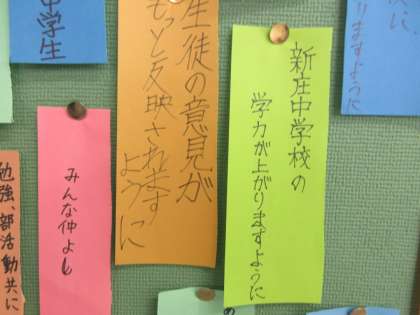 新庄中学校の
学力が上がりますように
生徒の意見が
もっと反映されます
ように
みんな仲よし
中学生
りますように
勉強、部活動共に